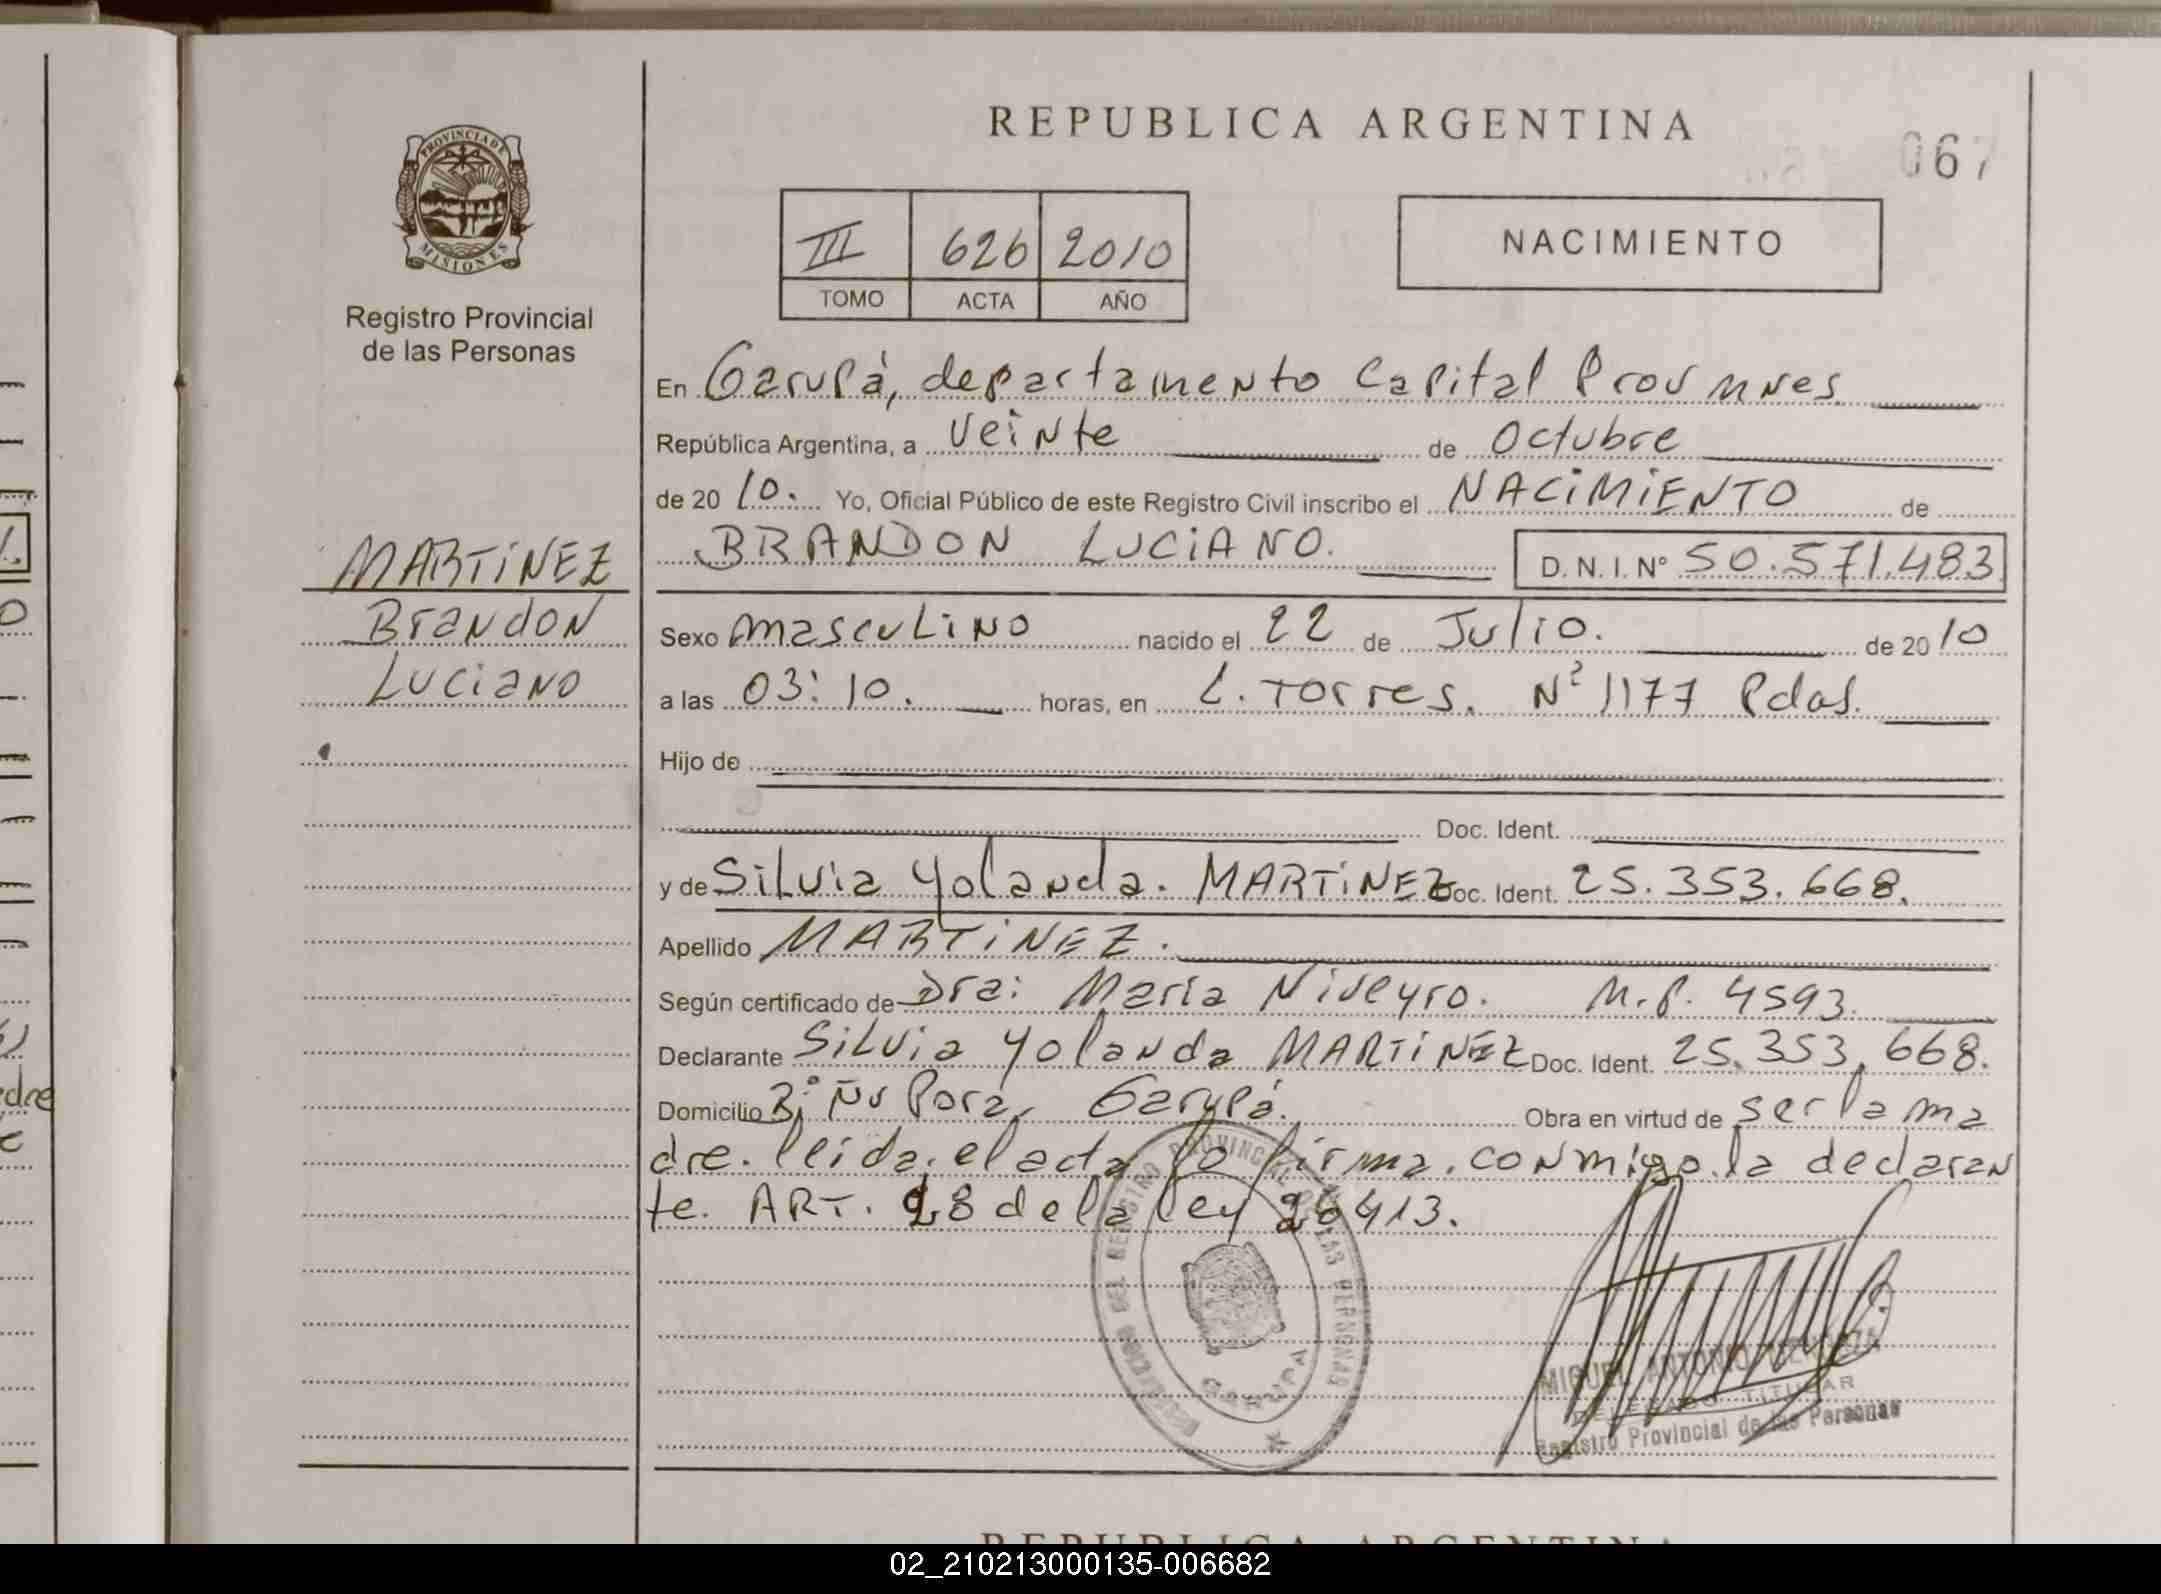 REPUBLICA ARGENTINA
067
PROVINCIA DE
MISIONES
Registro Provincial
de las Personas
III 626 2010
TOMO ACTA AÑO
NACIMIENTO
En Garupá, departamento Capital Prov Mnes
República Argentina, a veinte de Octubre
de 20 10. Yo, Oficial Público de este Registro Civil inscribo el NACIMIENTO de
BRANDON LUCIANO. D.N.I.Nº 50.571.483
MARTINEZ
Brandon
Luciano
Sexo masculino nacido el 22 de Julio. de 20 10
a las 03:10. horas, en L. Torres. Nº 1177 Pdas.
Hijo de
Doc. Ident.
y de Silvia Yolanda. MARTINEZ Doc. Ident. 25.353.668.
Apellido MARTINEZ.
Según certificado de Dra: Maria Niveyro. M.P. 4593.
Declarante Silvia Yolanda MARTINEZ Doc. Ident. 25.353.668.
Domicilio Bº Ñu Pora, Garupá. Obra en virtud de ser la ma
dre. lleida. el acta lo firma. conmigo. la declaran
te. ART. 28 de la ley 26413.
REGISTRO PROVINCIAL DE LAS PERSONAS
GARUPA
MIGUEL ANTONIO
DELEGADO TITULAR
Registro Provincial de las Personas
REPUBLICA ARGENTINA
02_210213000135-006682